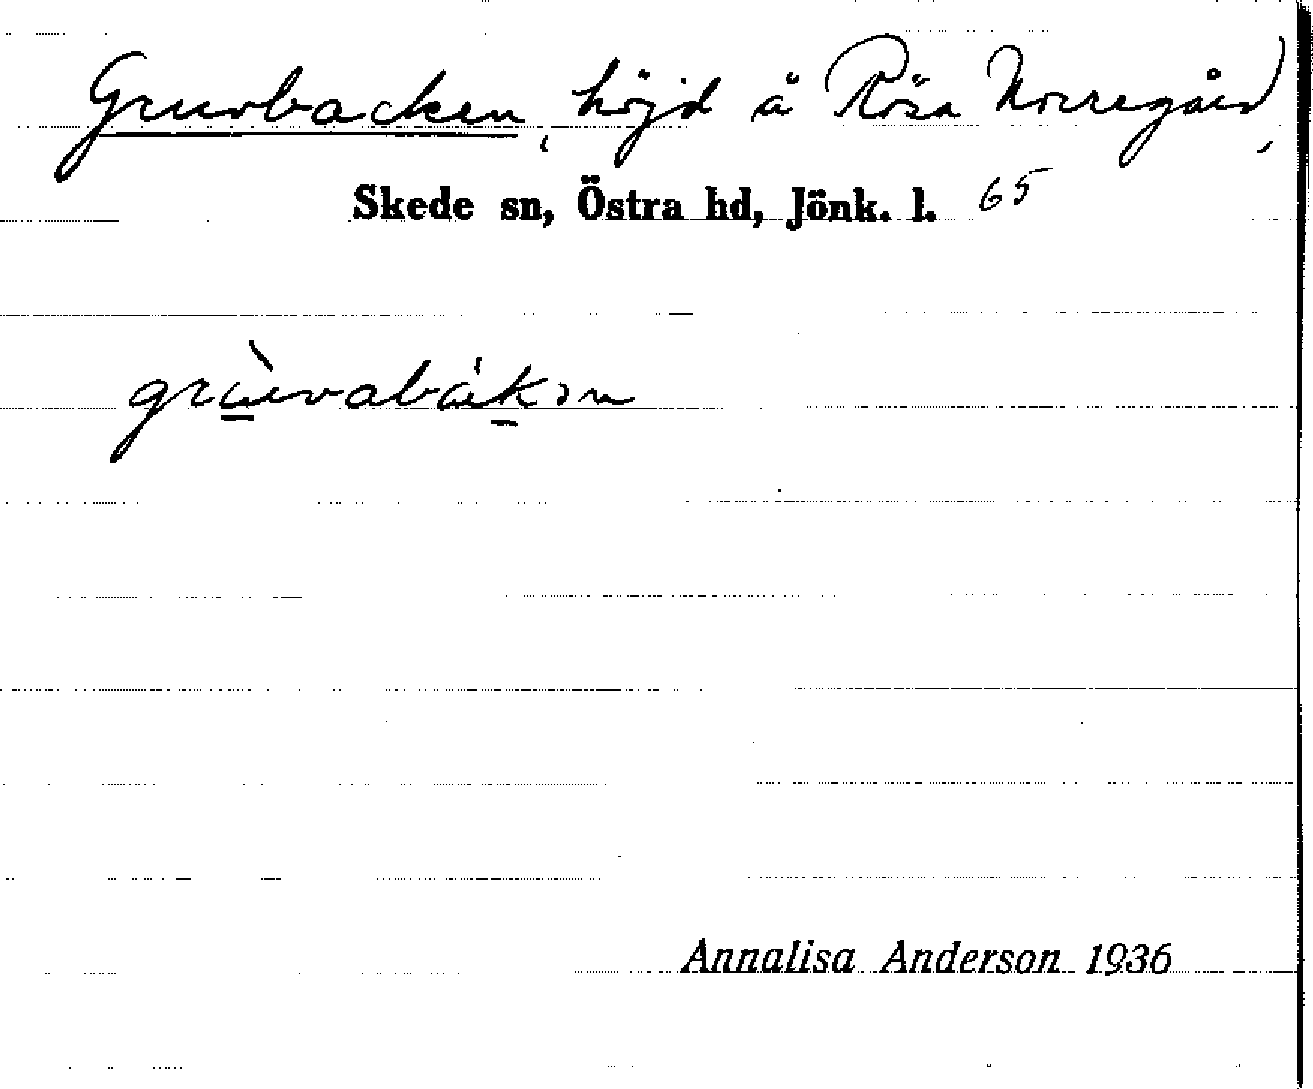 Gruvbacken, höjd å Rösa Norregård,
Skede sn, Östra hd, Jönk. l. 65
Annalisa Anderson 1936